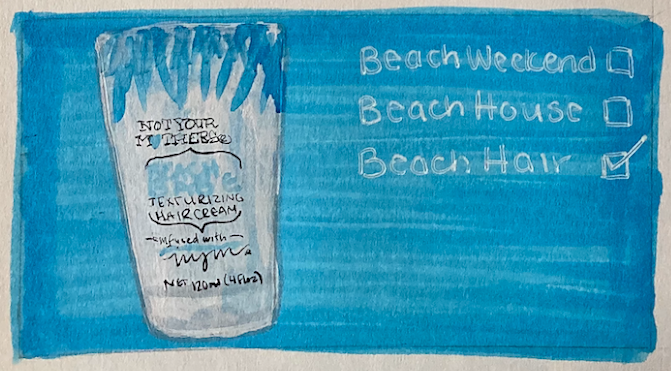 NOT YOUR
MOTHERS®
TEXTURIZING
HAIR CREAM
infused with
NET 120ml (4 fl oz)
Beach Weekend
Beach House
Beach Hair